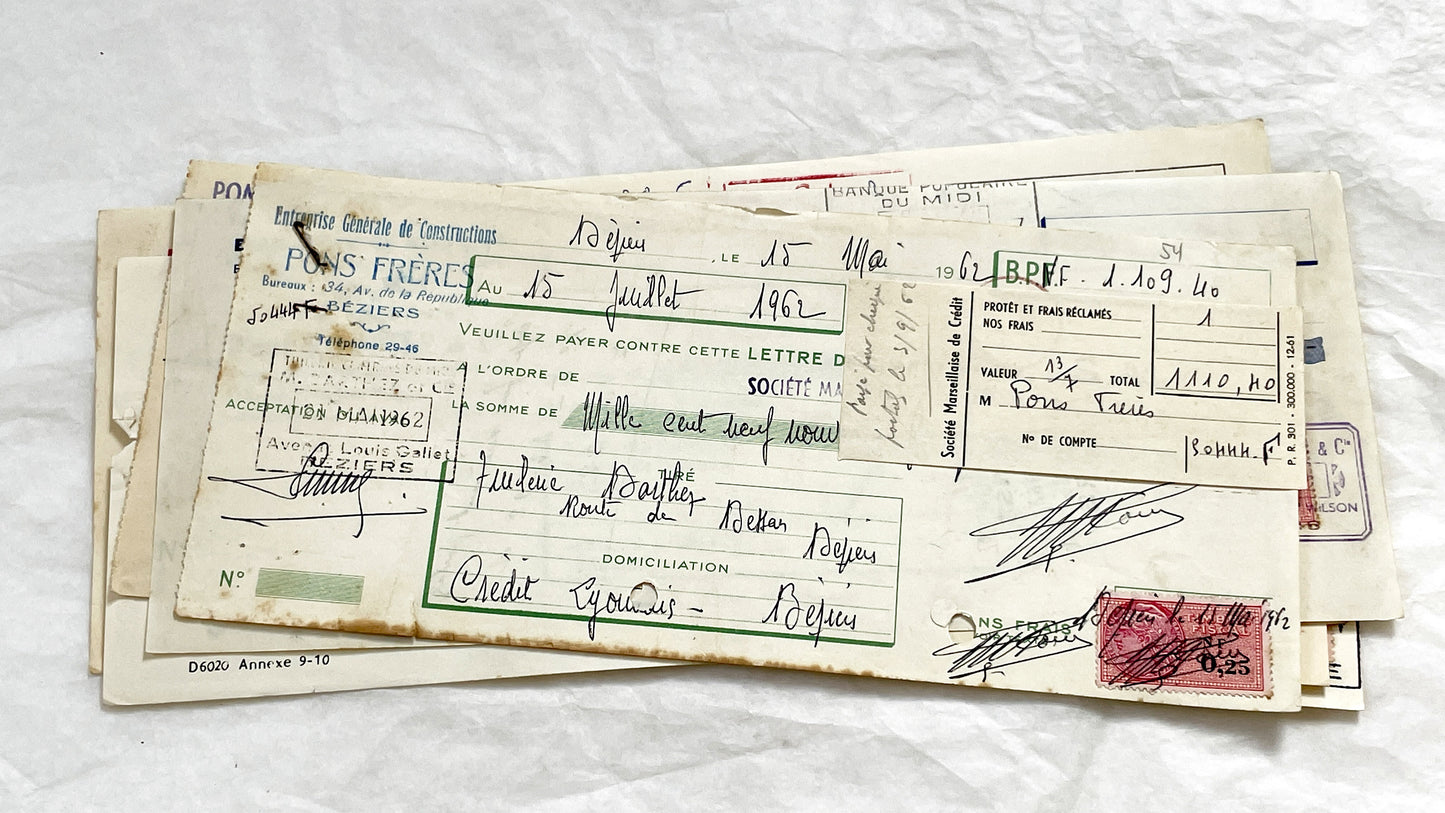 PON
BANQUE POPULAIRE
DU MIDI
Entreprise Générale de Constructions
PONS FRÈRES
Bureaux : 34, Av. de la République
BÉZIERS
Téléphone 29-46
50444 F
Béziers, LE 15 Mai 1962
54
B.P.F. 1.109.40
Au 15 Juillet 1962
VEUILLEZ PAYER CONTRE CETTE LETTRE D
A L'ORDRE DE
SOCIÉTÉ MA
LA SOMME DE Mille cent neuf nouv
M. BARTHEZ et Cie
ACCEPTATION
MAI 1962
Avenue Louis Gallet
BEZIERS
TIRÉ
Frédéric Barthez
Route de Bessan Béziers
DOMICILIATION
Crédit Lyonnais - Béziers
N°
Payé par chèque
postal le 3/9/62
Société Marseillaise de Crédit
PROTÊT ET FRAIS RÉCLAMÉS
NOS FRAIS 1
VALEUR 13/7 TOTAL 1110,40
M Pons Frères
N° DE COMPTE 50444.F
P. R. 301 - 300.000 - 12-61
& Cie
WILSON
NS FRAIS
Béziers le 15 Mai 1962
0,25
D6020 Annexe 9-10